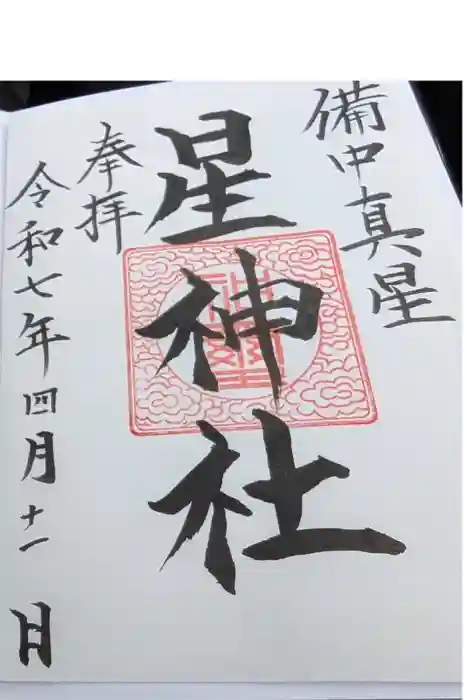 備中真星
星神社
奉拝
令和七年四月十一日